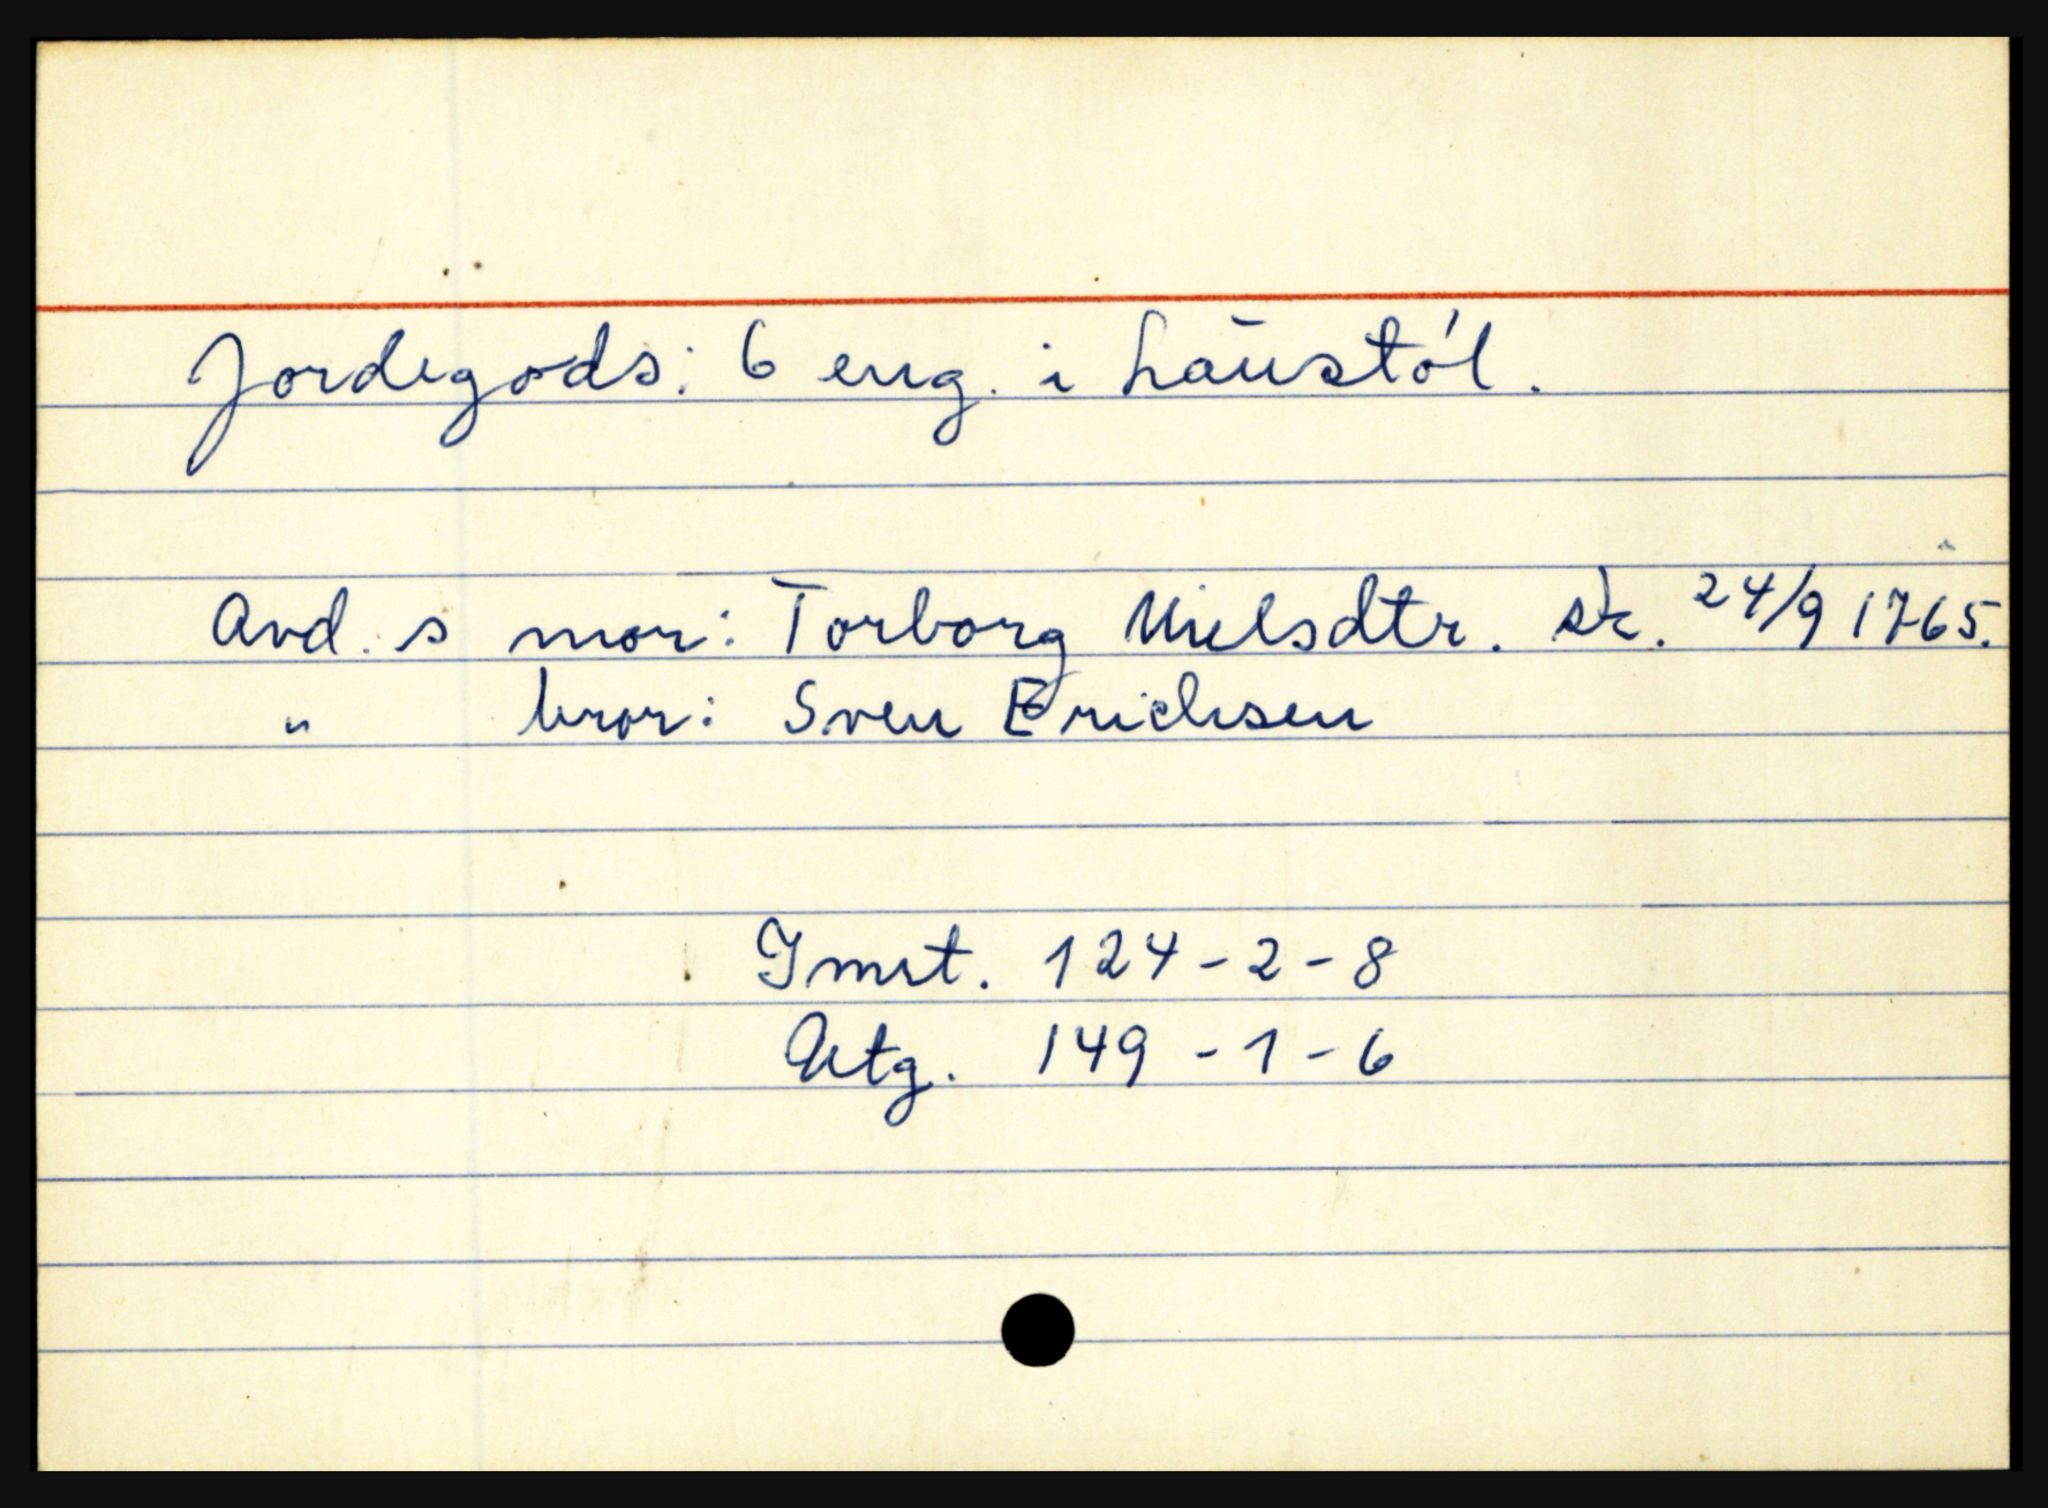 Jordegods: 6 eng. i Laustøl.
Avd. s mor: Torborg Nielsdtr. sk. 24/9 1765.
" bror: Sven Erichsen
Imst. 124-2-8
Utg. 149-1-6